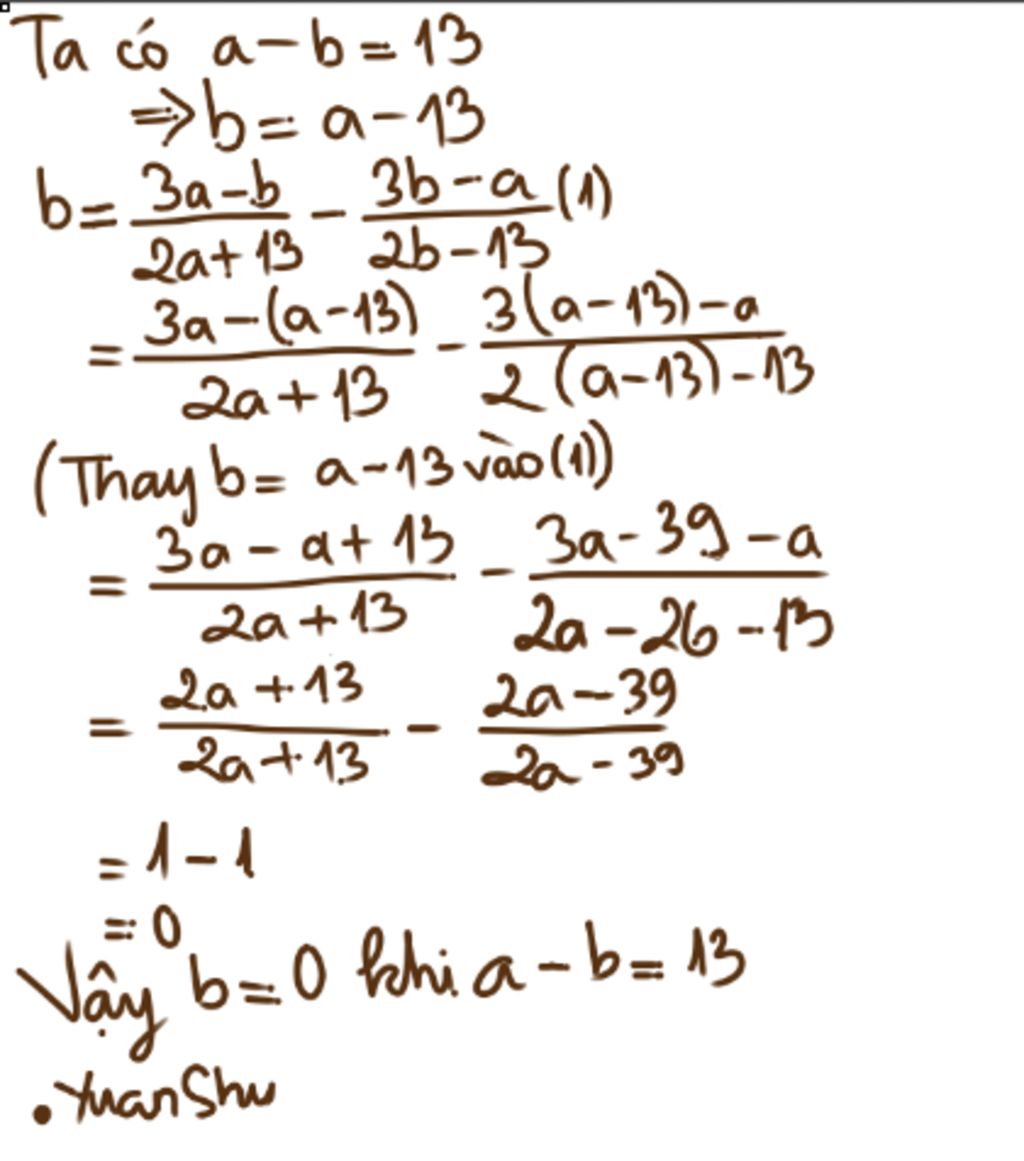 Ta có a - b = 13
⇒ b = a - 13
b = (3a - b)/(2a + 13) - (3b - a)/(2b - 13) (1)
= (3a - (a - 13))/(2a + 13) - (3(a - 13) - a)/(2(a - 13) - 13)
(Thay b = a - 13 vào (1))
= (3a - a + 13)/(2a + 13) - (3a - 39 - a)/(2a - 26 - 13)
= (2a + 13)/(2a + 13) - (2a - 39)/(2a - 39)
= 1 - 1
= 0
Vậy b = 0 khi a - b = 13
. XuanShu